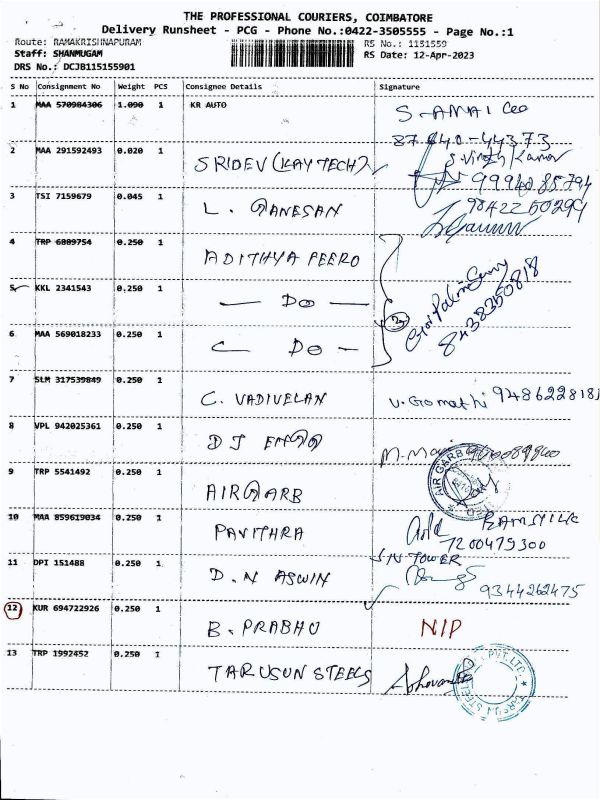 THE PROFESSIONAL COURIERS, COIMBATORE
Delivery Runsheet - PCG - Phone No.:0422-3505555 - Page No.:1
Route: RAMAKRISHNAPURAM
RS No.: 1131559
Staff: SHANMUGAM
RS Date: 12-Apr-2023
DRS No.: DCJB115155901
S No Consignment No Weight PCS Consignee Details Signature
1 MAA 570984306 1.090 1 KR AUTO
2 MAA 291592493 0.020 1 SRIDEV (KAY TECH)
3 TSI 7159679 0.045 1 L. GANESAN
4 TRP 6889754 0.250 1 ADITHYA FEERO
5 KKL 2341543 0.250 1 — DO —
6 MAA 569018233 0.250 1 — DO —
7 SLM 317539849 0.250 1 C. VADIVELAN V. Gomathi 9486228181
8 VPL 942025361 0.250 1 DJ ENGG
9 TRP 5541492 0.250 1 AIRGARB AIR GARB
10 MAA 859619034 0.250 1 PAVITHRA
7200479300
S.N TOWER
11 DPI 151488 0.250 1 D.N ASWIN 9344262475
12 KUR 694722926 0.250 1 B. PRABHU NIP
13 TRP 1992452 0.250 1 TARUSUN STEELS